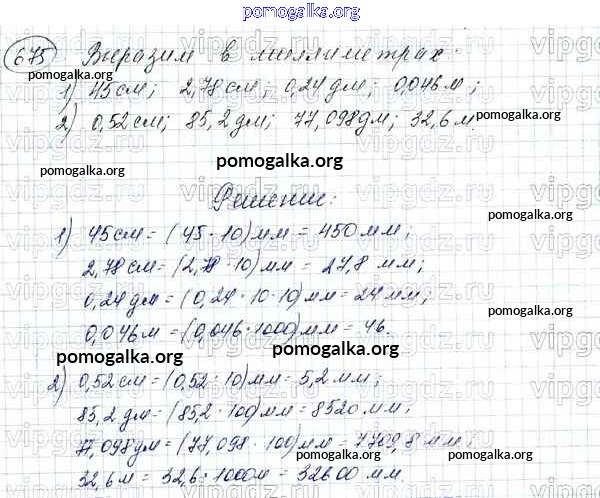 pomogalka.org
675 Выразим в миллиметрах:
pomogalka.org
1) 45 см; 2,78 см; 0,24 дм; 0,046 м;
pomogalka.org
2) 0,52 см; 85,2 дм; 77,098 дм; 32,6 м.
pomogalka.org
Решение:
pomogalka.org
1) 45 см = (45 · 10) мм = 450 мм;
2,78 см = (2,78 · 10) мм = 27,8 мм;
pomogalka.org
0,24 дм = (0,24 · 10 · 10) мм = 24 мм;
0,046 м = (0,046 · 1000) мм = 46.
pomogalka.org pomogalka.org
2) 0,52 см = (0,52 · 10) мм = 5,2 мм;
85,2 дм = (85,2 · 100) мм = 8520 мм;
77,098 дм = (77,098 · 100) мм = 7709,8 мм;
pomogalka.org pomogalka.org
32,6 м = 32,6 · 1000 м = 32600 мм.